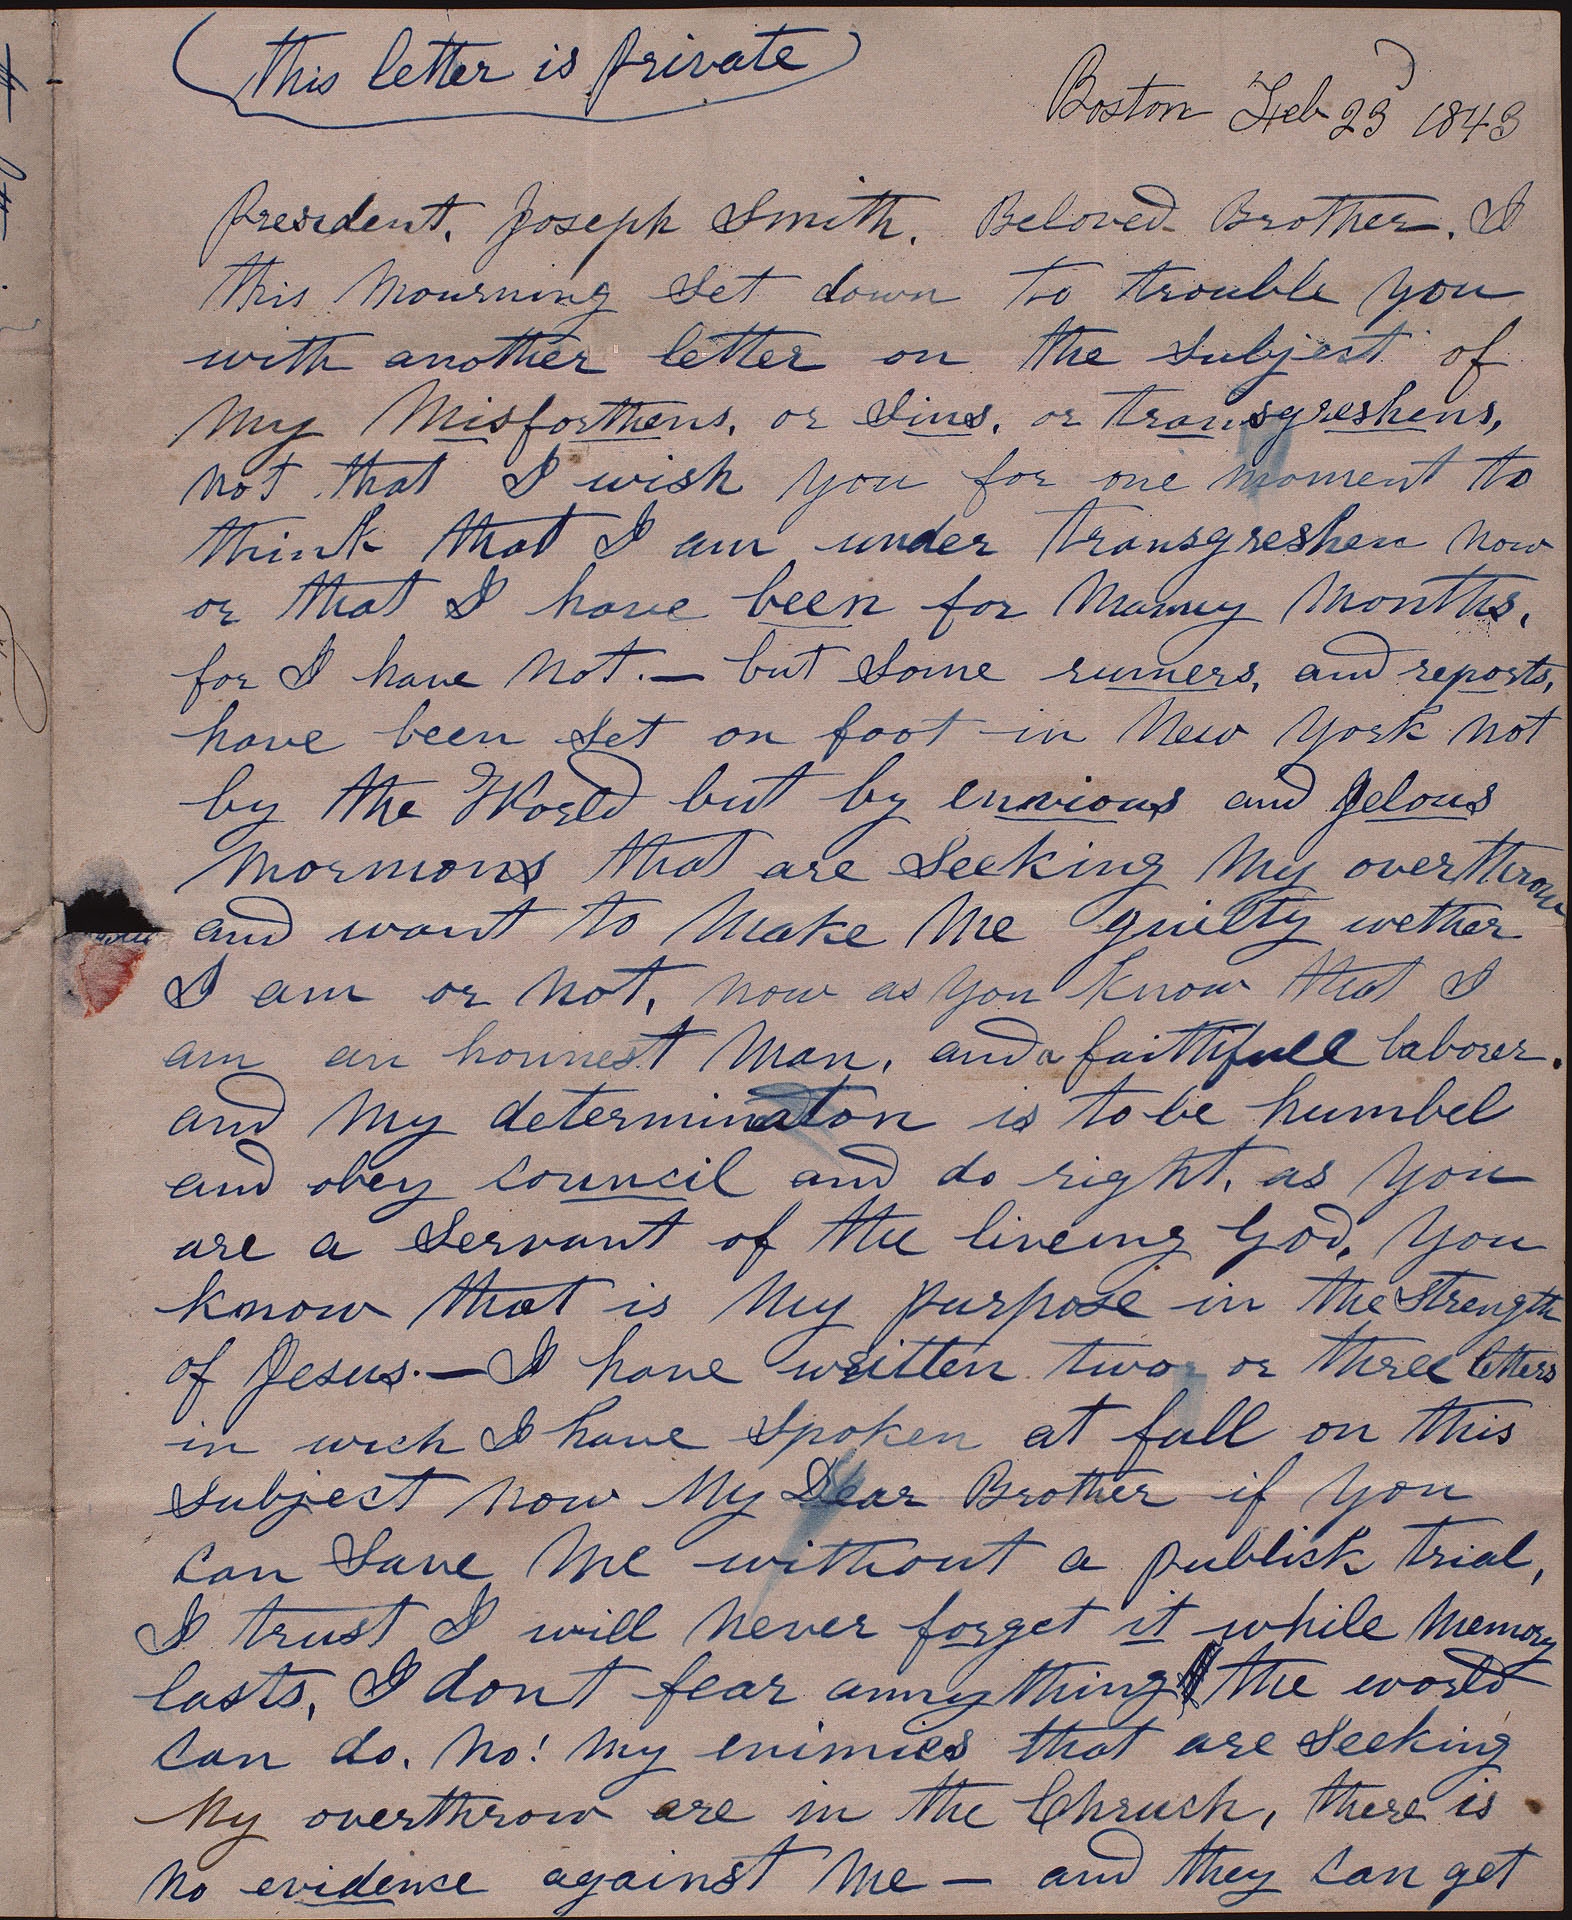 this letter is private
Boston Feb 23d 1843
President, Joseph Smith, Beloved Brother, I
this Mourning Set down to trouble you
with another letter on the Subject of
My Misforthens, or Sins, or transgreshens,
not that I wish you for one moment to
think that I am under transgreshen now
or that I have been for Manny Months,
for I have Not.— but Some rumers, and reports,
have been Set on foot in New York not
by the World but by envious and Jelous
Mormons that are Seeking My overthrow
and want to Make Me guilty wether
I am or Not, now as you know that I
am an honnest Man, and a faithfull laborer.
and My determinaton is to be humbel
and obey council and do right, as you
are a Servant of the liveing God, you
know that is My purpose in the Strength
of Jesus.— I have written two or three letters
in wich I have Spoken at full on this
Subject now My Dear Brother if you
can Save Me without a publick trial,
I trust I will Never forget it while Memory
lasts, I dont fear anny thing the world
can do. No! My enimies that are Seeking
My overthrow are in the Chruch, there is
No evidence against Me — and they can get